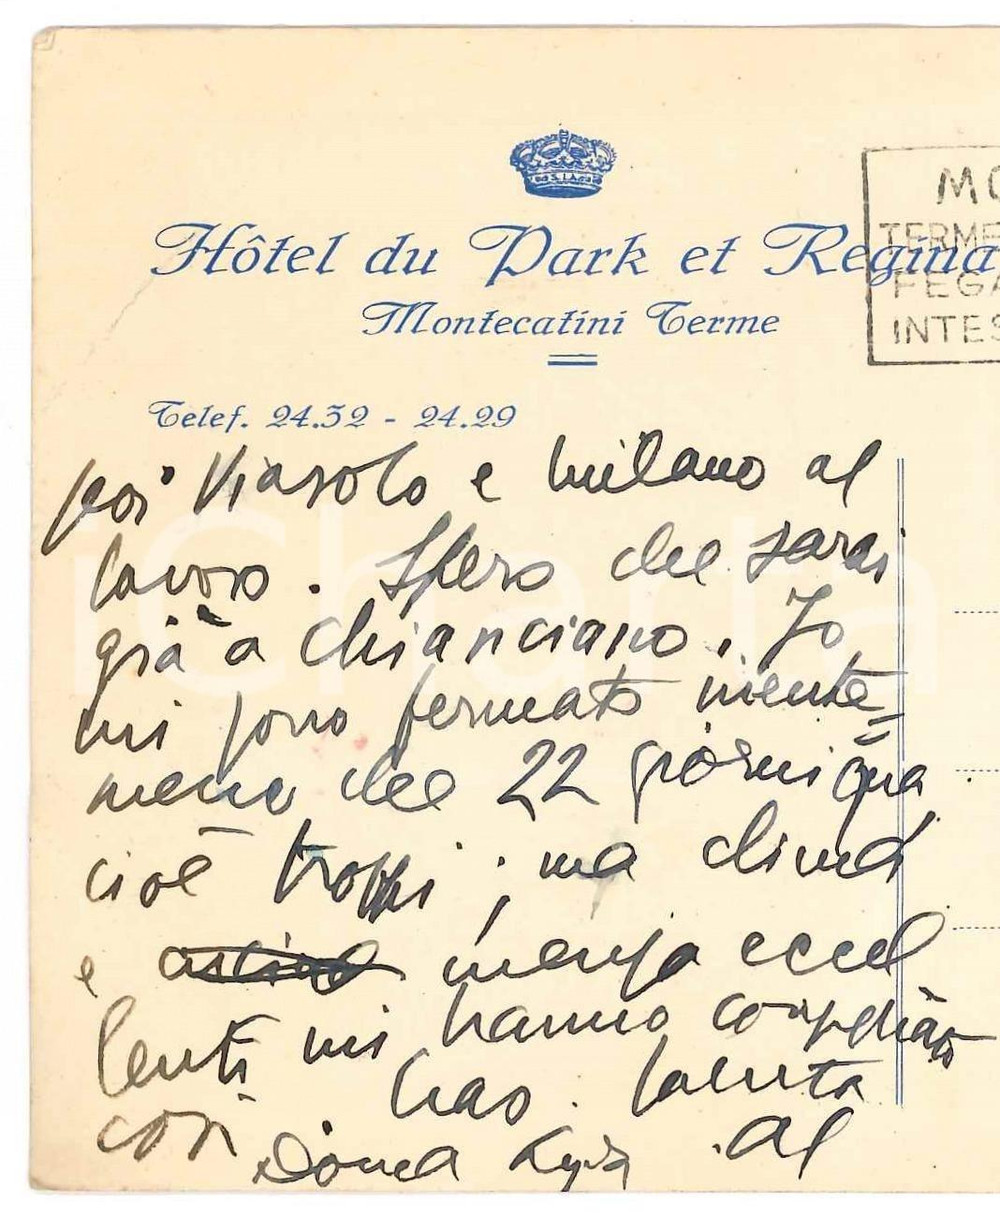 Hôtel du Park et Regina
Montecatini Terme
Telef. 24.32 - 24.29
MO
TERME
FEGA
INTES
poi Viarolo e Milano al
lavoro. Spero che sarai
già a Chianciano. Io
mi sono fermato niente=
meno che 22 giorni qua
cioè troppi; ma clima
e mensa eccel
lenti mi hanno consigliato
così Ciao. Saluta
Donna al
iCharta